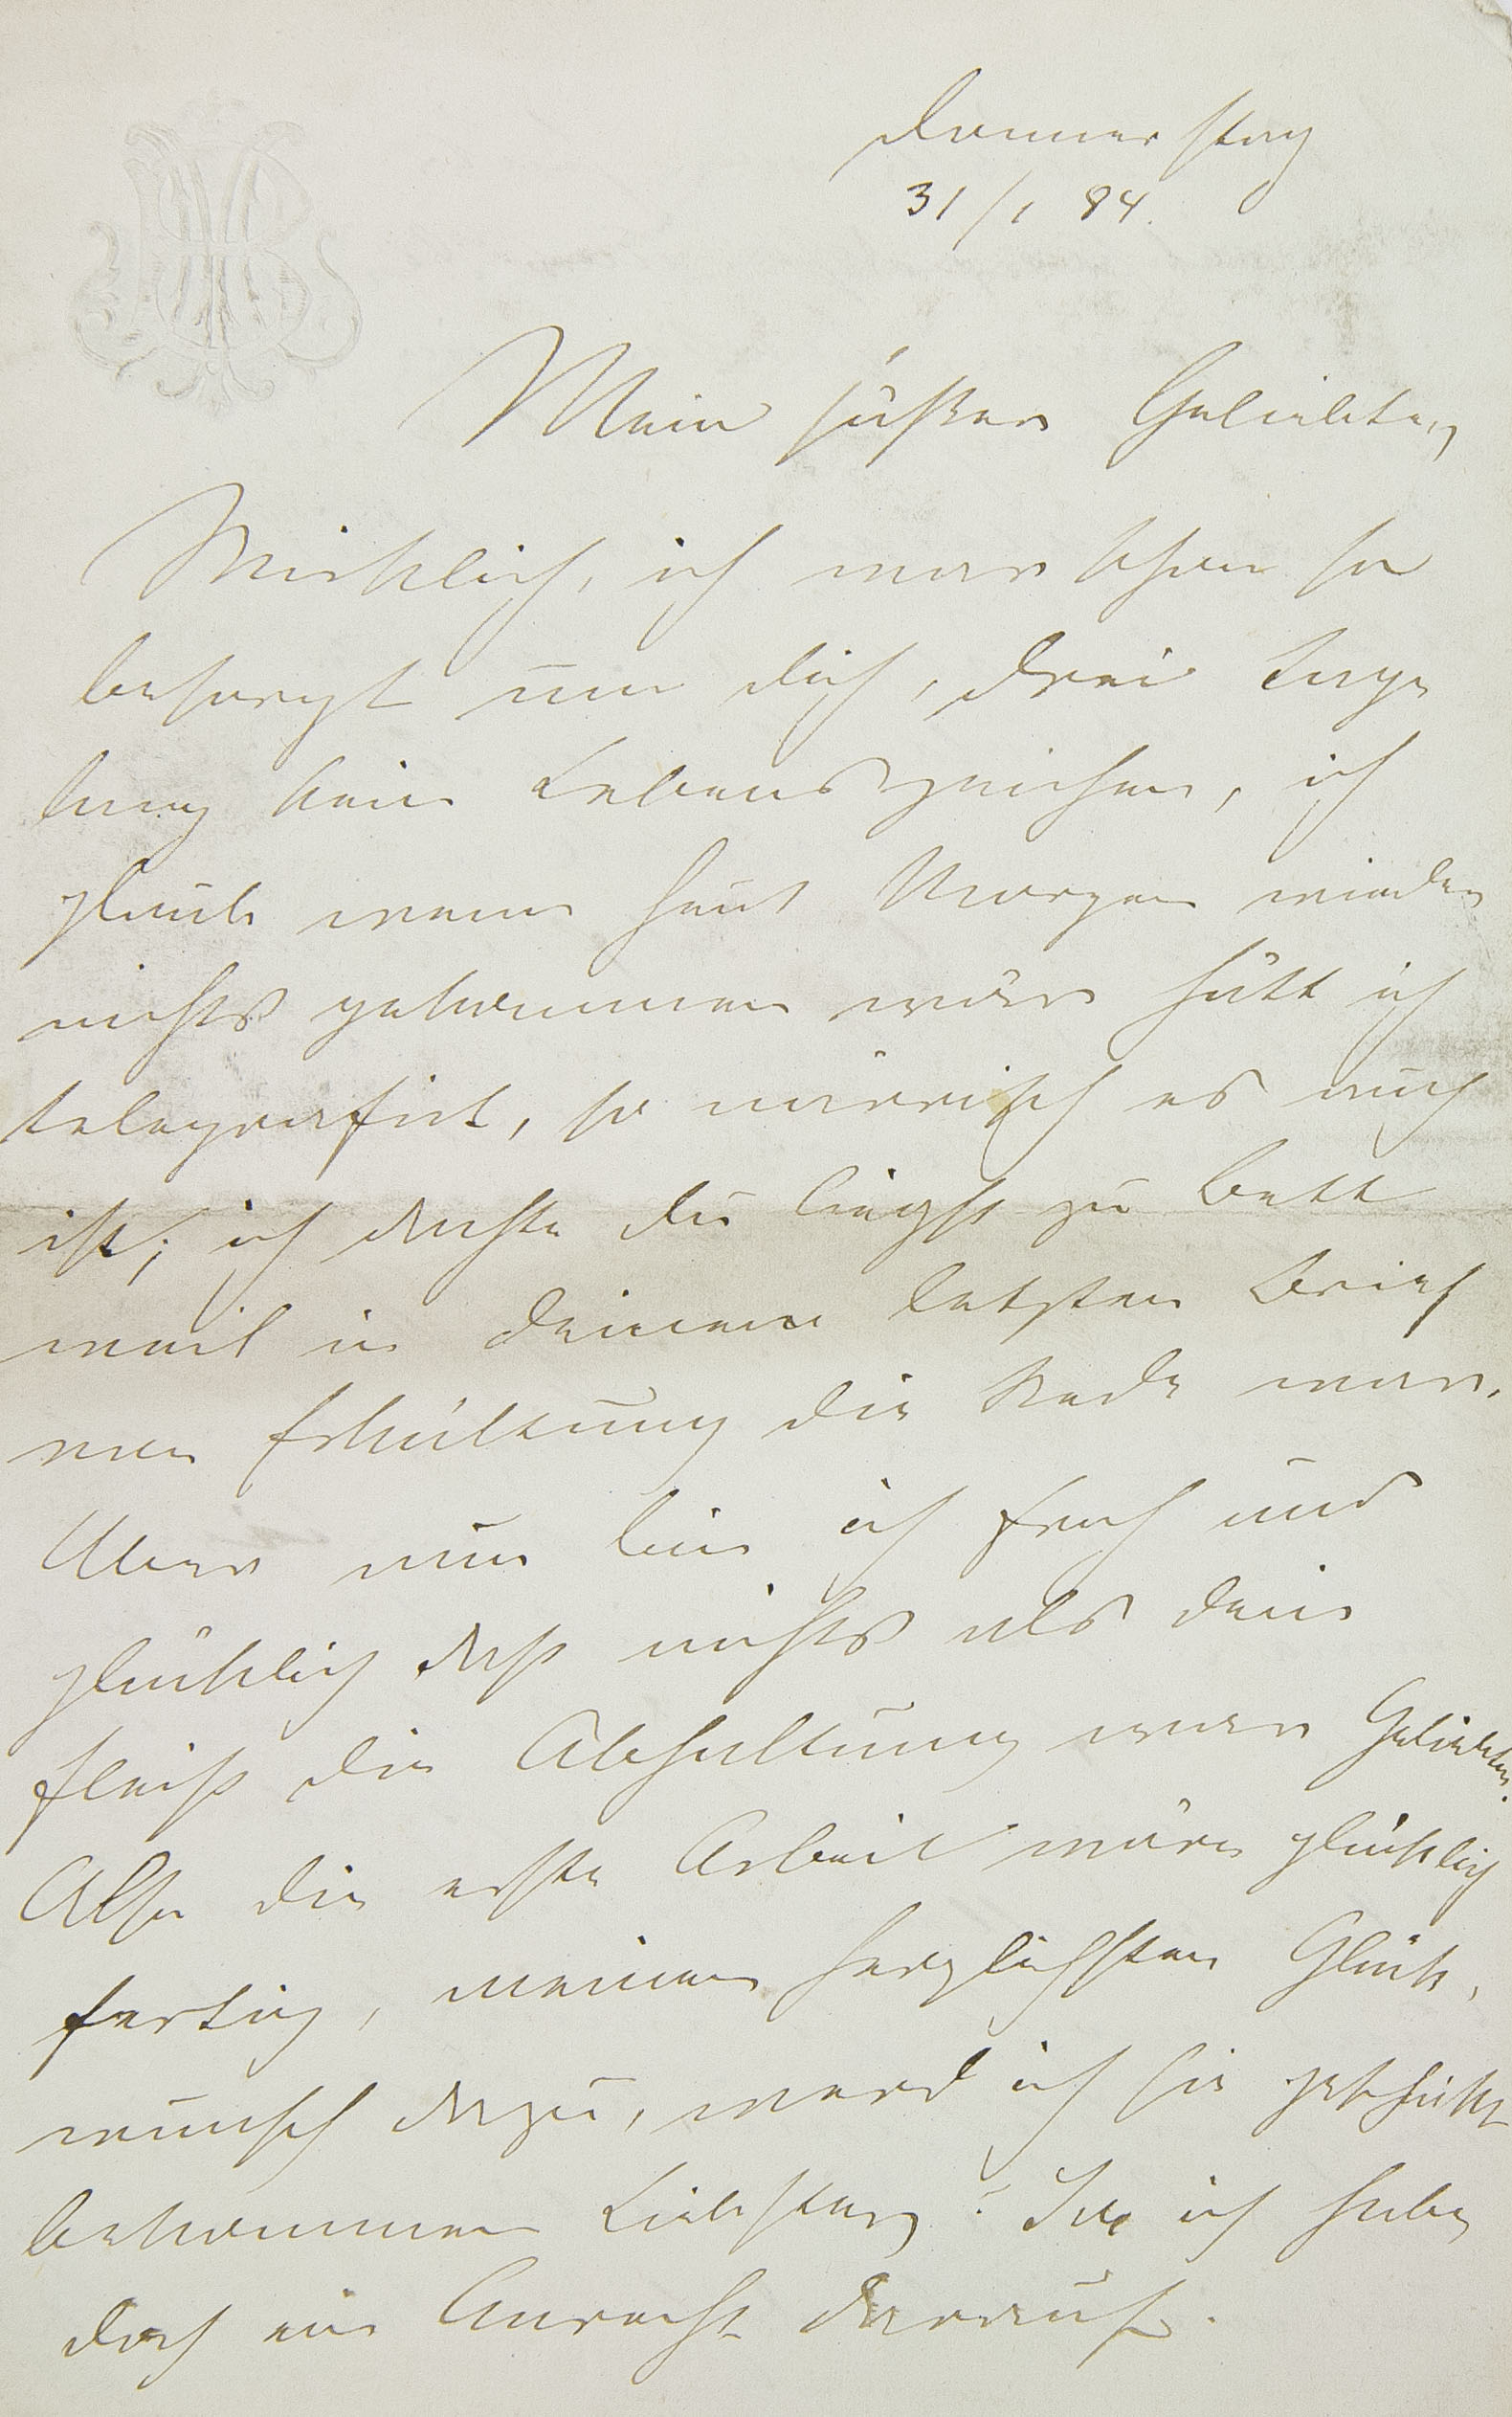 Donnerstag
31/1 84.
Mein süßer Geliebter,
Wirklich, ich war schon so
besorgt um dich, drei Tage
lang kein Lebenszeichen, ich
glaub wenn heut Morgen wieder
nichts gekommen wäre hätt ich
telegrafirt, so närrisch es auch
ist; ich dachte du liegst zu Bett
weil in deinem letzten Brief
von Erkältung die Rede war.
Aber nun bin ich froh und
glücklich daß nichts als dein
Fleiß die Abhaltung war Geliebter.
Also die erste Arbeit wäre glücklich
fertig, meinen herzlichsten Glück,
wunsch dazu, werd ich sie geschickt
bekommen Liebster? Ja ich habe
doch ein Anrecht darauf.